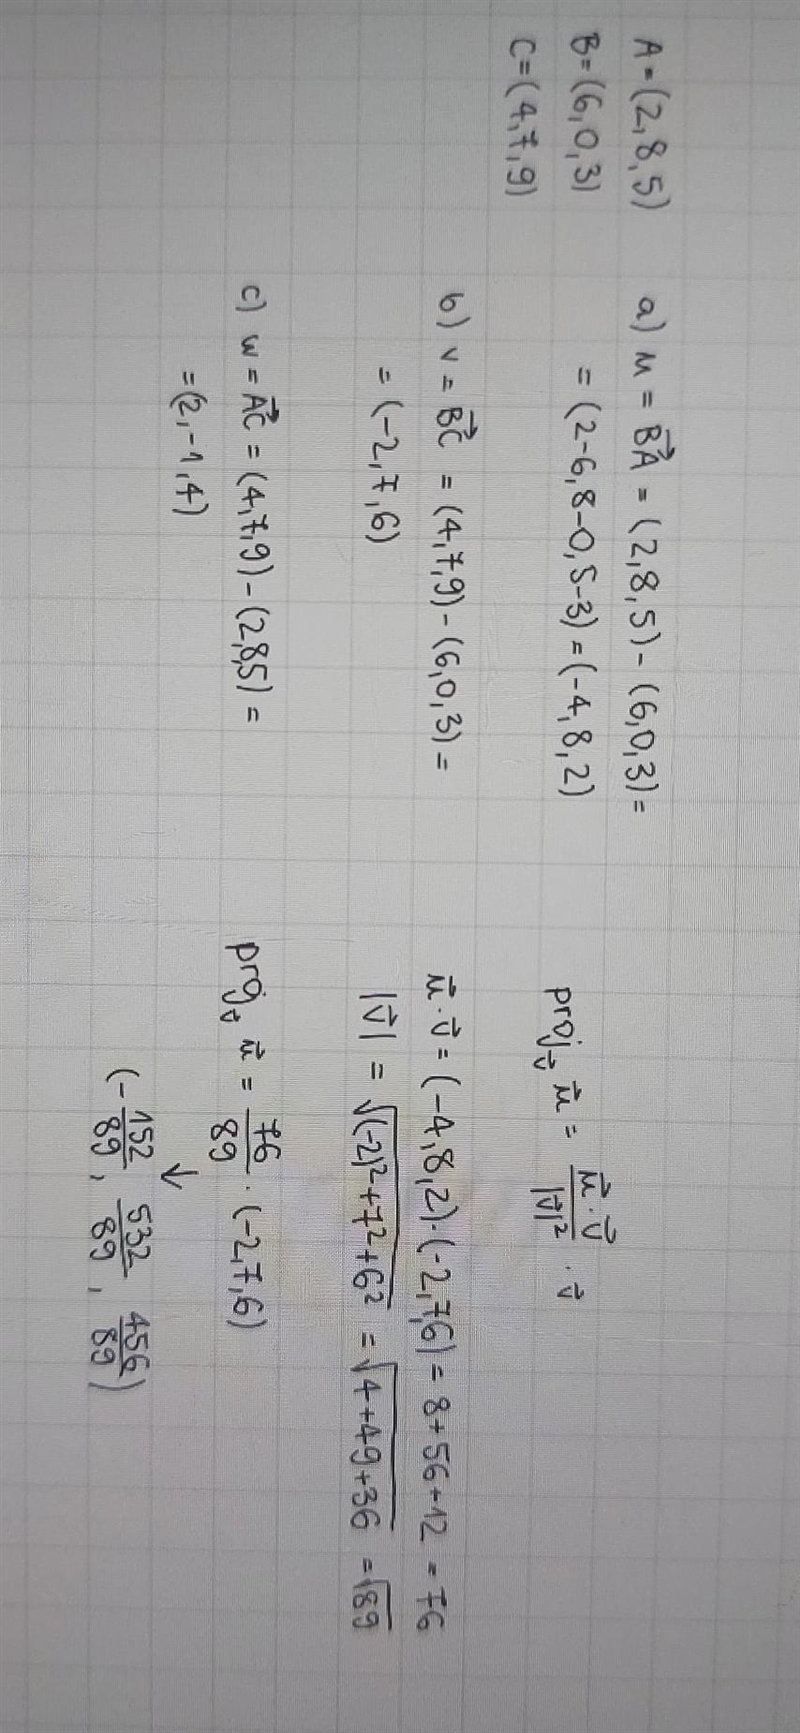 A = (2, 8, 5)
B = (6, 0, 3)
C = (4, 7, 9)
a) u = \vec{BA} = (2, 8, 5) - (6, 0, 3) =
= (2-6, 8-0, 5-3) = (-4, 8, 2)
b) v = \vec{BC} = (4, 7, 9) - (6, 0, 3) =
= (-2, 7, 6)
c) w = \vec{AC} = (4, 7, 9) - (2, 8, 5) =
= (2, -1, 4)
proj_{\vec{v}} \vec{u} = \frac{\vec{u} \cdot \vec{v}}{|\vec{v}|^2} \cdot \vec{v}
\vec{u} \cdot \vec{v} = (-4, 8, 2) \cdot (-2, 7, 6) = 8 + 56 + 12 = 76
|\vec{v}| = \sqrt{(-2)^2 + 7^2 + 6^2} = \sqrt{4 + 49 + 36} = \sqrt{89}
proj_{\vec{v}} \vec{u} = \frac{76}{89} \cdot (-2, 7, 6)
↓
(-\frac{152}{89}, \frac{532}{89}, \frac{456}{89})